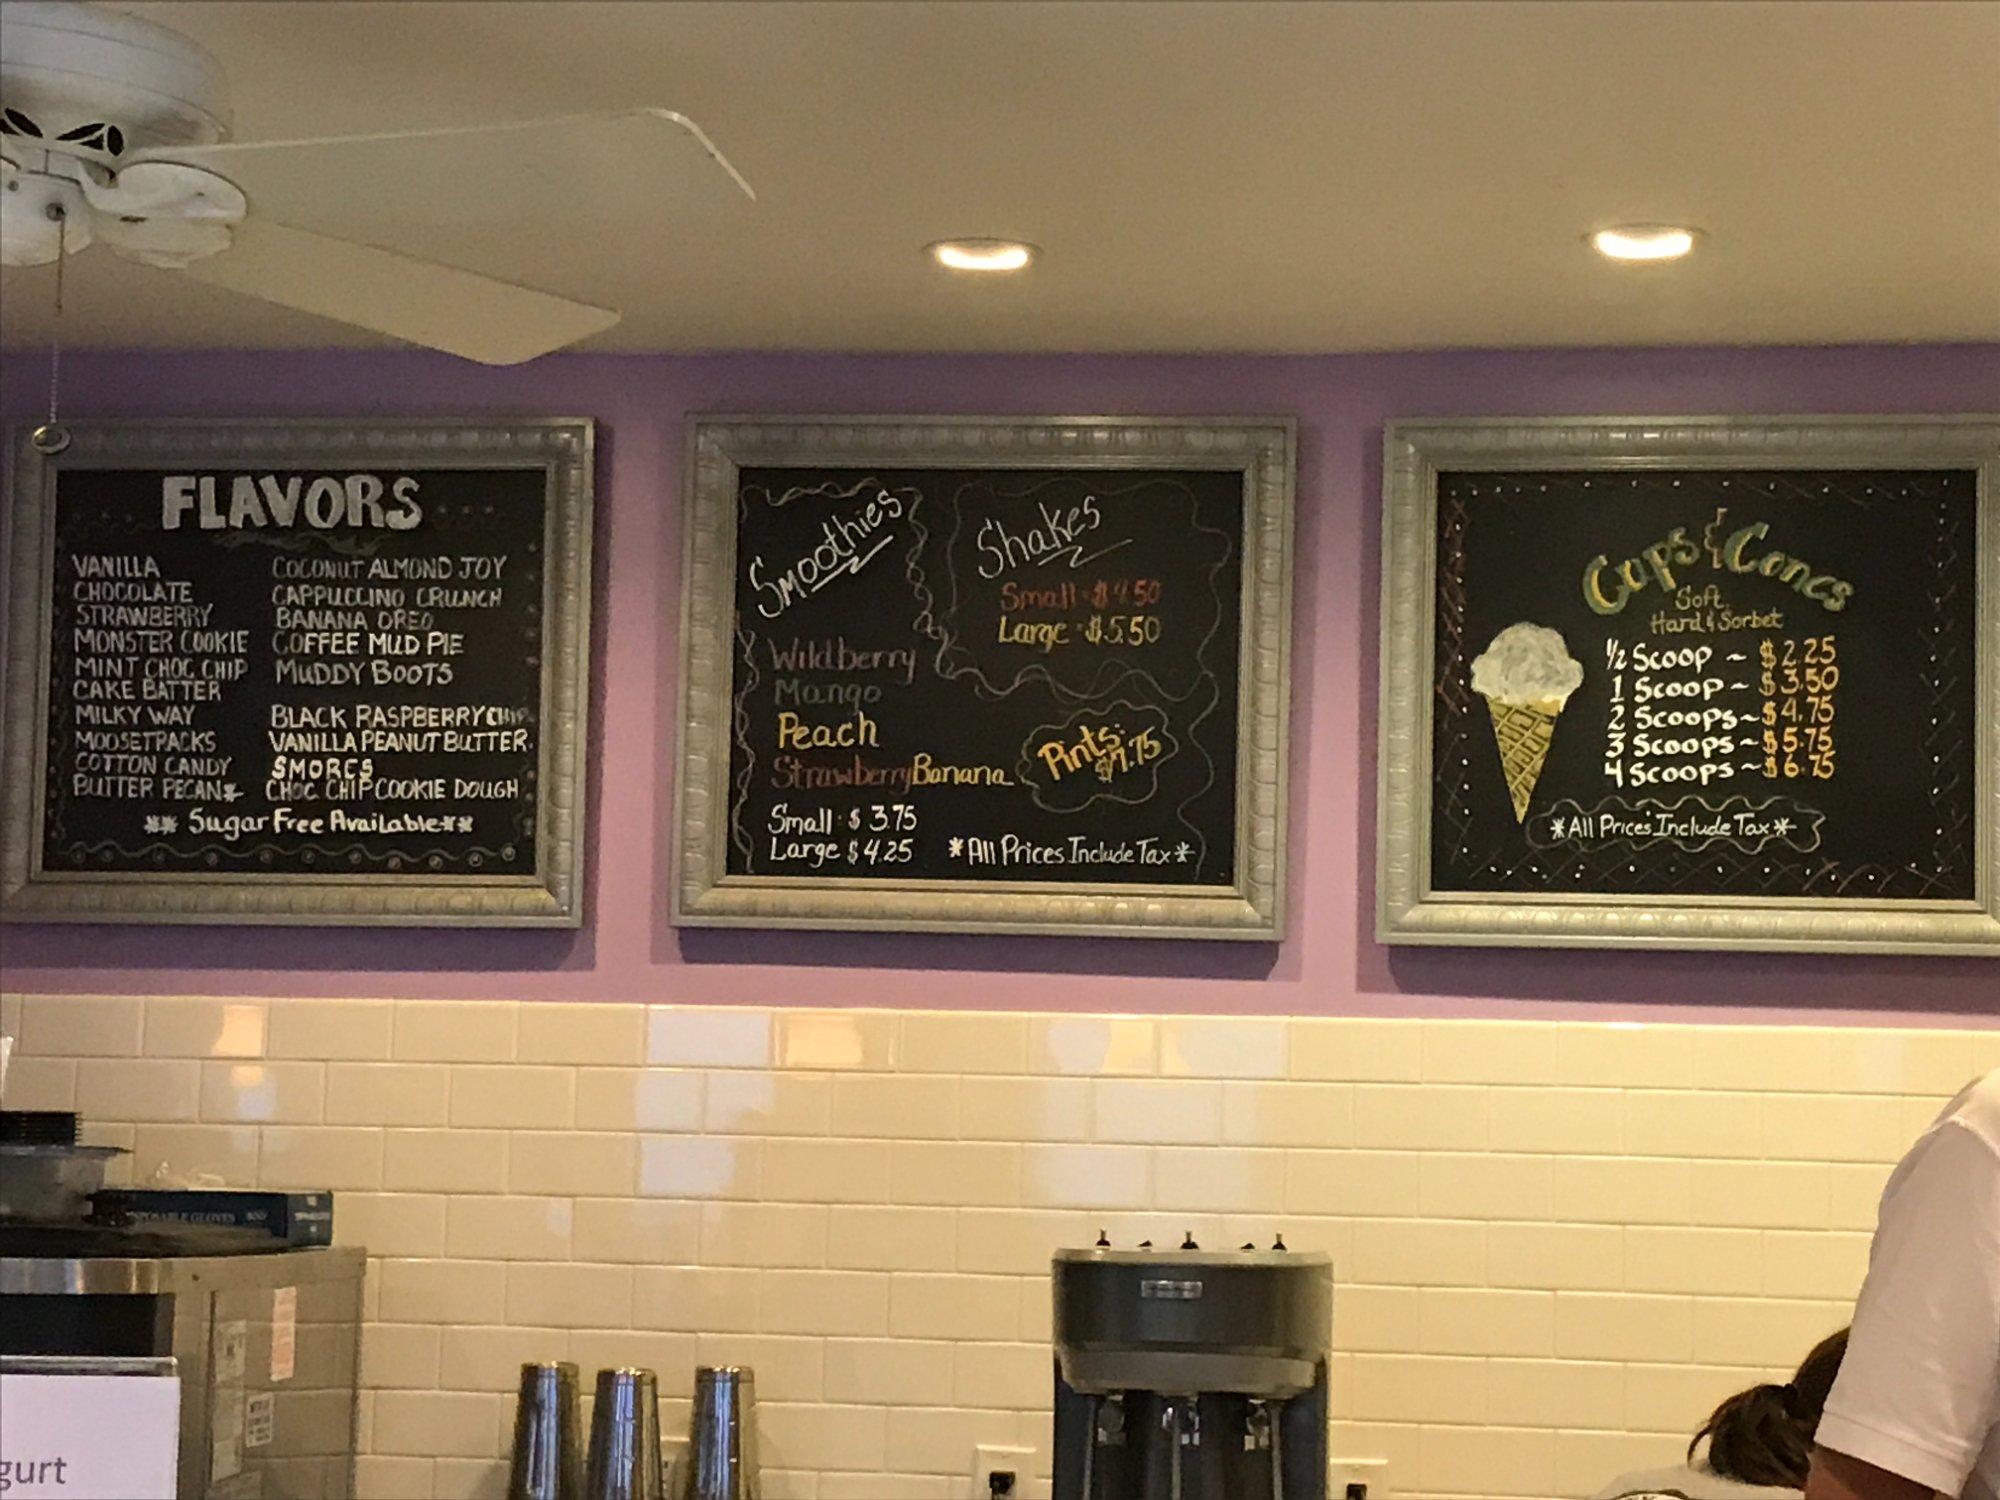 FLAVORS
VANILLA
CHOCOLATE
STRAWBERRY
MONSTER COOKIE
MINT CHOC CHIP
CAKE BATTER
MILKY WAY
MOOSETPACKS
COTTON CANDY
BUTTER PECAN*
COCONUT ALMOND JOY
CAPPUCCINO CRUNCH
BANANA OREO
COFFEE MUD PIE
MUDDY BOOTS
BLACK RASPBERRY CHIP
VANILLA PEANUT BUTTER
SMORES
CHOC CHIP COOKIE DOUGH
** Sugar Free Available **
Smoothies
Wildberry
Mango
Peach
Strawberry Banana
Small $ 3.75
Large $ 4.25
Shakes
Small $ 4.50
Large $ 5.50
Pints:
.75
*All Prices Include Tax*
Cups & Cones
Soft,
Hard & Sorbet
1/2 Scoop ~ $ 2.25
1 Scoop ~ $ 3.50
2 Scoops ~ $ 4.75
3 Scoops ~ $ 5.75
4 Scoops ~ $ 6.75
*All Prices Include Tax*
GLOVES
gurt